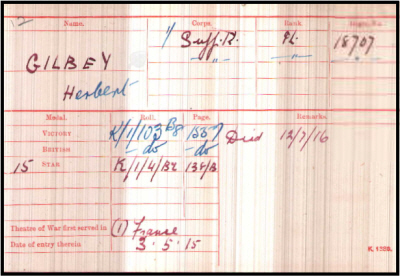 Name. Corps. Rank Regtl. No.
GILBEY 1/ Suff. R. Pte. 18707
Herbert — " — — " — — " —
Medal. Roll. Page. Remarks.
VICTORY K/1/103 B8 1557 Died 12/7/16
BRITISH - do - do
15 STAR K/1/4/B2 138/B
Theatre of War first served in (1) France
Date of entry therein 3.5.15
K. 1380.